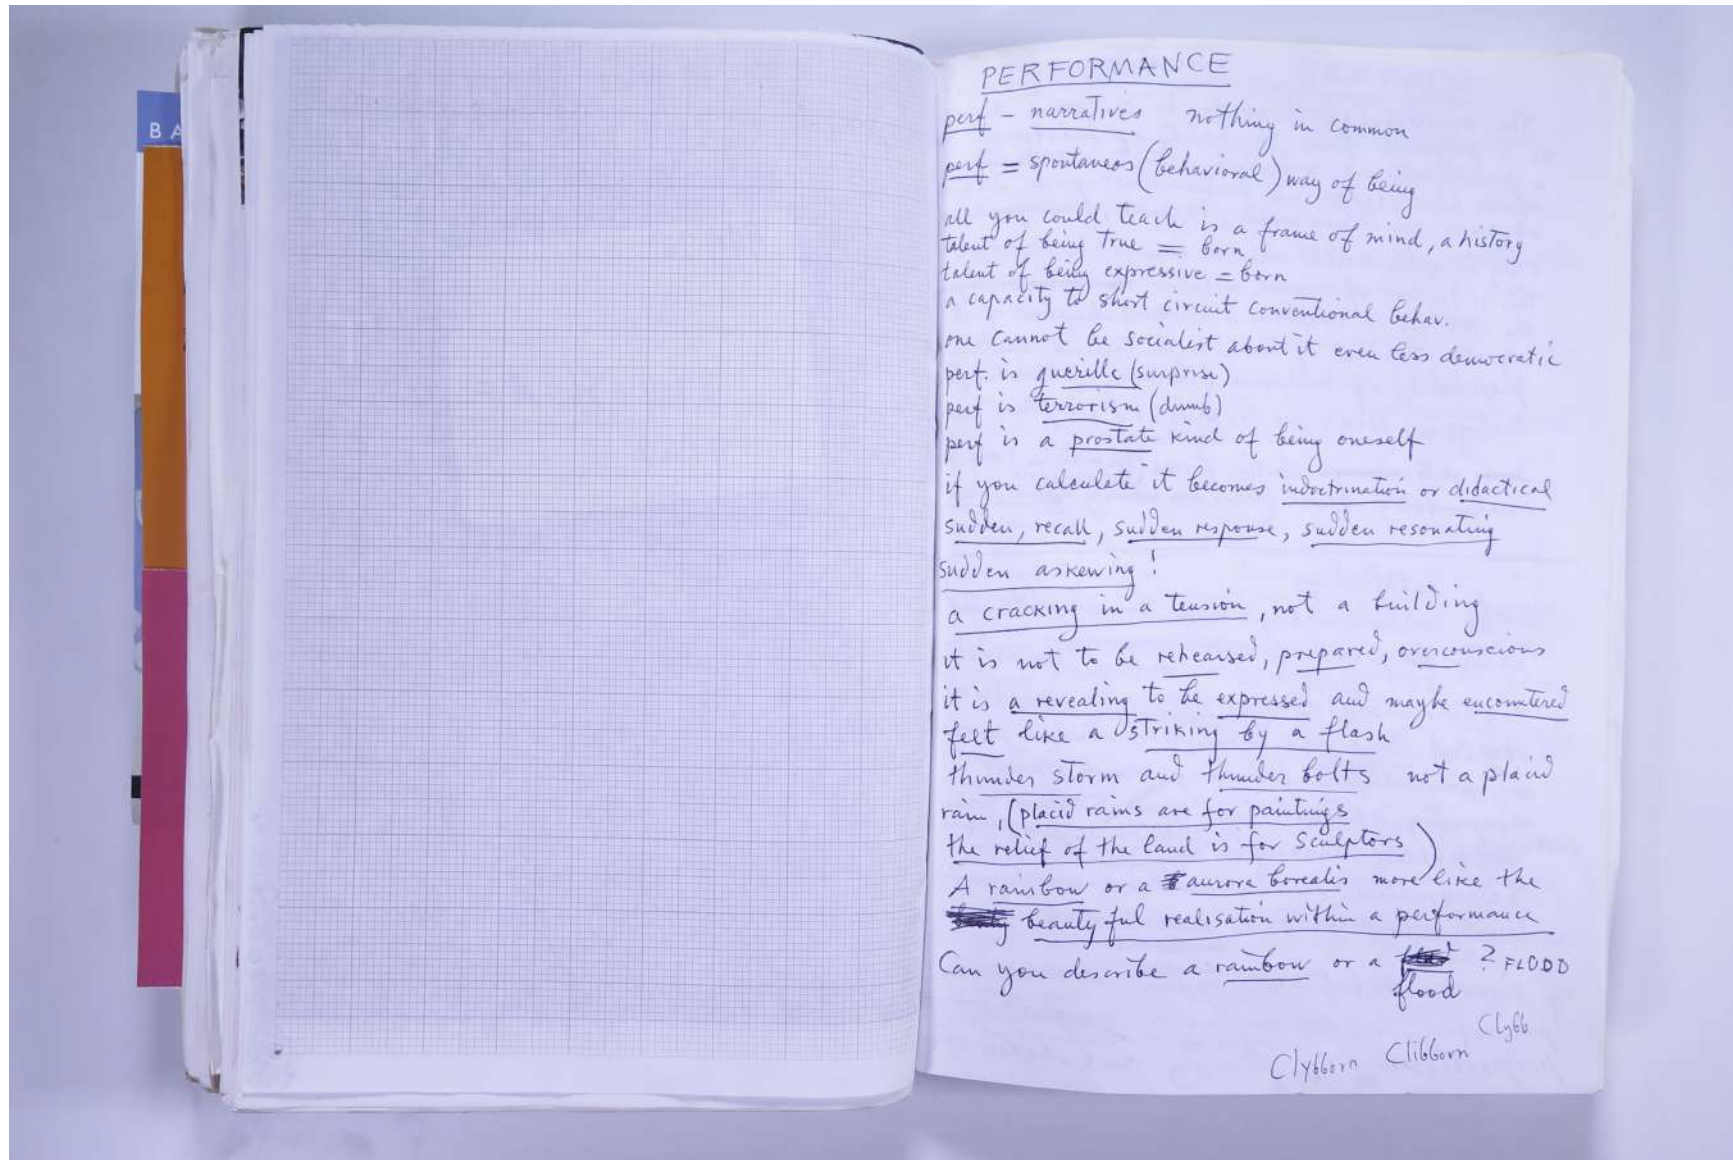 BA
PERFORMANCE
perf - narratives nothing in common
perf = spontaneos (behavioral) way of being
all you could teach is a frame of mind, a history
talent of being true = born
talent of being expressive = born
a capacity to short circuit conventional behav.
one cannot be socialist about it even less democratic
perf. is guerille (surprise)
perf is terrorism (dumb)
perf is a prostate kind of being oneself
if you calculate it becomes indoctrination or didactical
sudden, recall, sudden response, sudden resonating
sudden askewing!
a cracking in a tension, not a building
it is not to be rehearsed, prepared, overconscious
it is a revealing to be expressed and maybe encountered
felt like a striking by a flash
thunder storm and thunder bolts not a placid
rain, (placid rains are for paintings
the relief of the land is for sculptors)
A rainbow or a aurora borealis more like the
beauty ful realisation within a performance
Can you describe a rainbow or a ? FLODD
flood
Clybb
Clybborn Clibborn